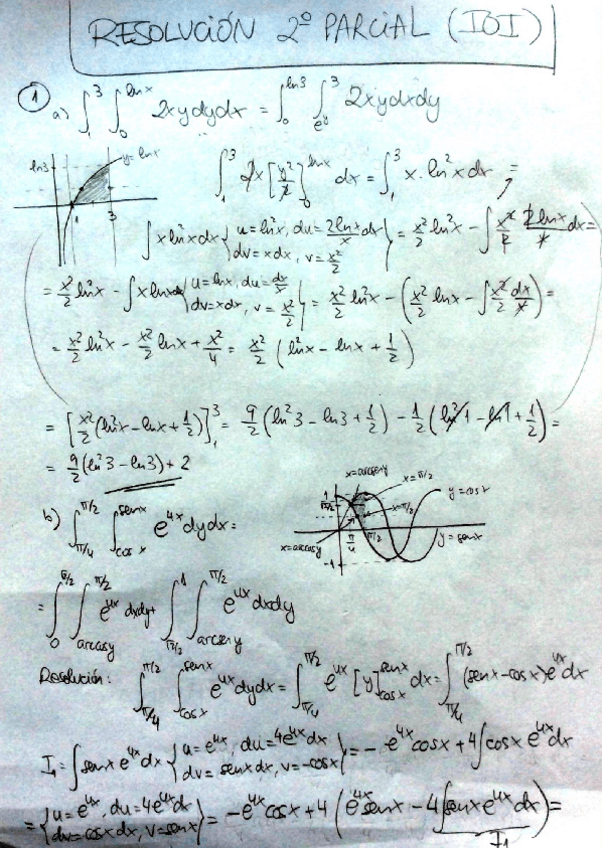 RESOLUCIÓN 2º PARCIAL (IOI)
① a) ∫₁³ ∫₀^{ln x} 2xy dy dx = ∫₀^{ln 3} ∫_{e^y}^3 2xy dx dy
ln 3 y = ln x 1 3
∫₁³ 2x [y²/2]₀^{ln x} dx = ∫₁³ x · ln² x dx =
∫ x ln² x dx {u = ln² x, du = 2 ln x/x dx; dv = x dx, v = x²/2} = x²/2 ln² x − ∫ x²/2 2 ln x/x dx =
= x²/2 ln² x − ∫ x ln x dx {u = ln x, du = dx/x; dv = x dx, v = x²/2} = x²/2 ln² x − (x²/2 ln x − ∫ x²/2 dx/x) =
= x²/2 ln² x − x²/2 ln x + x²/4 = x²/2 (ln² x − ln x + 1/2)
= [x²/2 (ln² x − ln x + 1/2)]₁³ = 9/2 (ln² 3 − ln 3 + 1/2) − 1/2 (ln² 1 − ln 1 + 1/2) =
= 9/2 (ln² 3 − ln 3) + 2
b) ∫_{π/4}^{π/2} ∫_{cos x}^{sen x} e^{4x} dy dx =
x = arcsen y x = π/2 y = cos x
1 √2/2 x = π/2
x = arccos y π/4 π/2 y = sen x
-1
= ∫₀^{√2/2} ∫_{arccos y}^{π/2} e^{4x} dx dy + ∫_{√2/2}^1 ∫_{arcsen y}^{π/2} e^{4x} dx dy
Resolución: ∫_{π/4}^{π/2} ∫_{cos x}^{sen x} e^{4x} dy dx = ∫_{π/4}^{π/2} e^{4x} [y]_{cos x}^{sen x} dx = ∫_{π/4}^{π/2} (sen x − cos x) e^{4x} dx
I₁ = ∫ sen x e^{4x} dx {u = e^{4x}, du = 4e^{4x} dx; dv = sen x dx, v = −cos x} = − e^{4x} cos x + 4 ∫ cos x e^{4x} dx
= {u = e^{4x}, du = 4e^{4x} dx; dv = cos x dx, v = sen x} = −e^{4x} cos x + 4 (e^{4x} sen x − 4 ∫ sen x e^{4x} dx) =
I₁